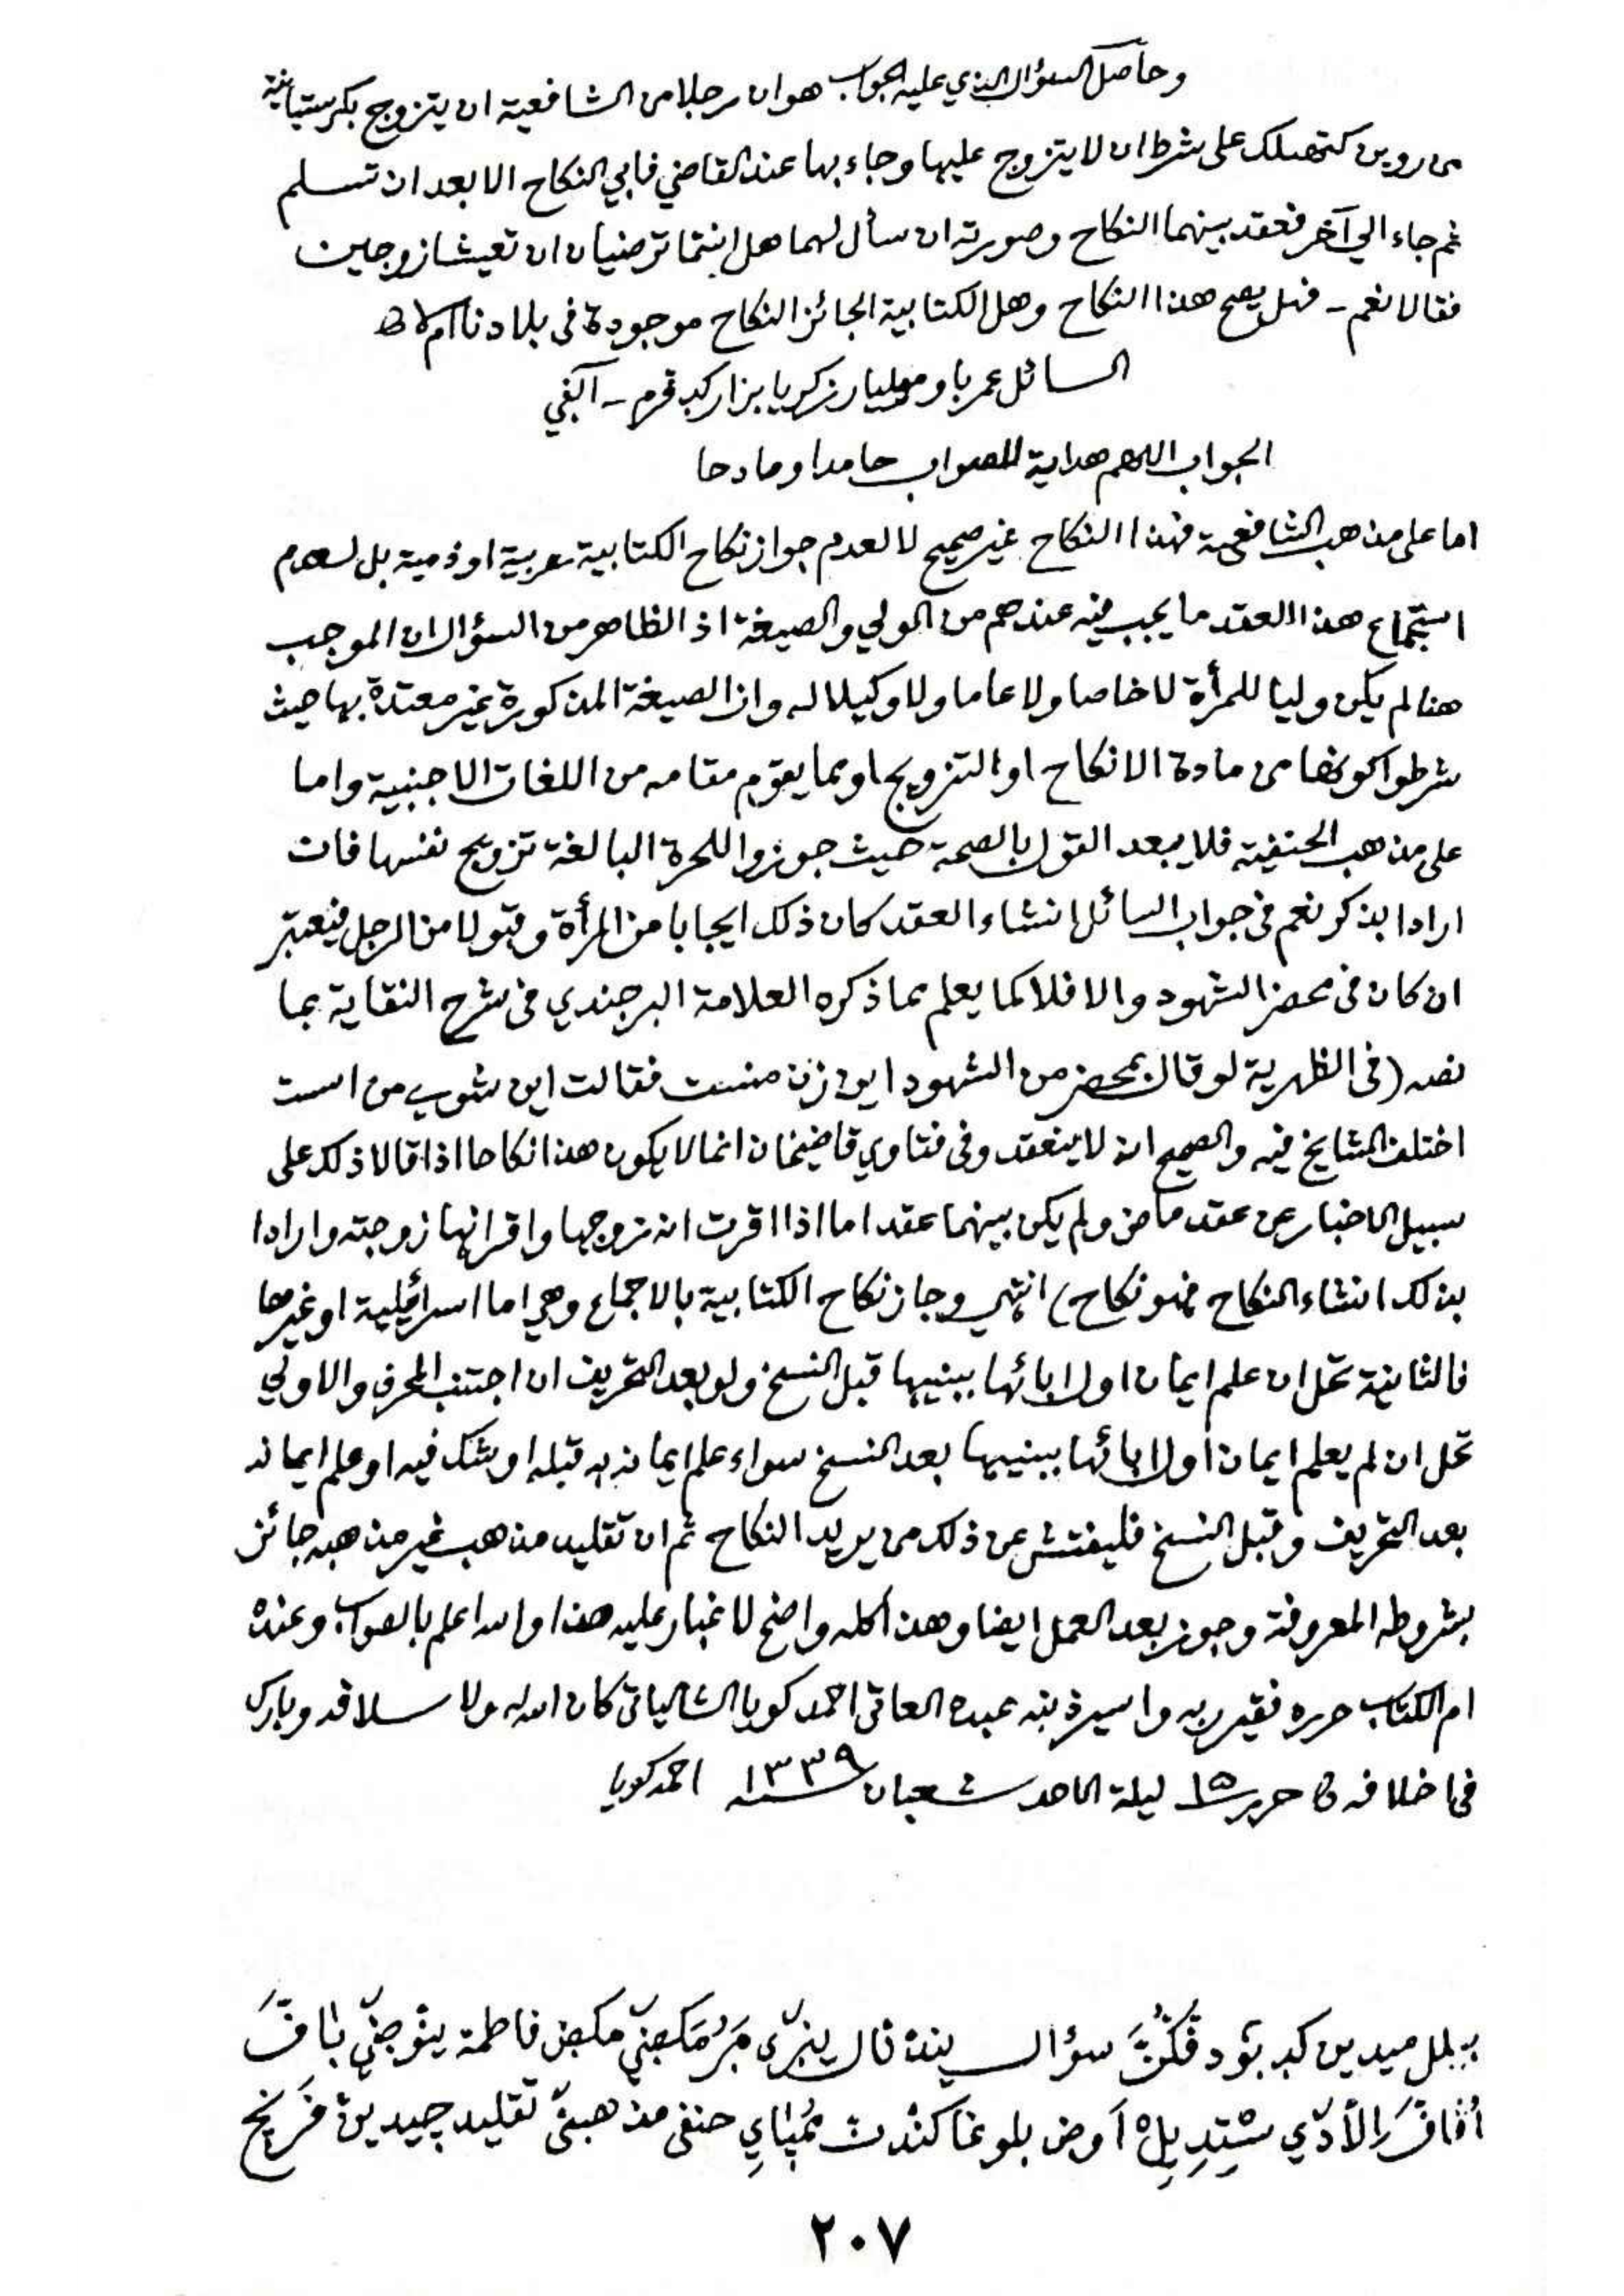 وحاصل السؤال الذي عليه الجواب هو ان رجلا من الشافعية ان يتزوج بكرستيانية
من رومن كتهلك على شرط ان لا يتزوج عليها وجاء بها عند القاضي فابي النكاح الا بعد ان تسلم
ثم جاء الي آخر فعقد بينهما النكاح وصورته ان سأل لهما هل انتما ترضيان ان تعيشا زوجين
فقالا نعم ـ فهل يصح هذا النكاح وهل الكتابية الجائز النكاح موجودة فى بلادنا ام لا
السائل عمر باو موليار زكريا بزار
الجواب اللهم هداية للصواب حامدا ومادحا
اما على مذهب الشافعية فهذا النكاح غير صحيح لا لعدم جواز نكاح الكتابية حربية او ذمية بل لعدم
استجماع هذا العقد ما يجب فيه عندهم من الولي والصيغة اذ الظاهر من السؤال ان الموجب
هنا لم يكن وليا للمرأة لا خاصا ولا عاما ولا وكيلا له وان الصيغة المذكورة غير معتدة بها حيث
شرطوا كونها من مادة الانكاح او التزويج او بما يقوم مقامه من اللغات الاجنبية واما
على مذهب الحنفية فلا يبعد القول بالصحة حيث جوزوا للحرة البالغة تزويج نفسها فان
ارادا بذكر نعم فى جواب السائل انشاء العقد كان ذلك ايجابا من المرأة وقبولا من الرجل فيعتبر
ان كان فى محضر الشهود والا فلا كما يعلم مما ذكره العلامة البرجندي فى شرح النقاية بما
نصه (فى الظهرية لو قال بمحضر من الشهود اين زن منست فقالت اين شوے من است
اختلف المشايخ فيه والصحيح انه لا ينعقد وفى فتاوي قاضيخان انما لا يكون هذا نكاحا اذا قالا ذلك على
سبيل الاخبار عن عقد ماض ولم يكن بينهما عقد اما اذا اقرت انه زوجها واقر انها زوجته وارادا
بذلك انشاء النكاح فهو نكاح) انتهي وجاز نكاح الكتابية بالاجماع وهي اما اسرائيلية او غيرها
فالثانية تحل ان علم ايمان اول ابائها بنبيها قبل النسخ ولو بعد التحريف ان اجتنب المحرف والاولي
تحل ان لم يعلم ايمان اول ابائها بنبيها بعد النسخ سواء علم ايمانه به قبله او شك فيه او علم ايمانه
بعد التحريف وقبل النسخ فليفتش عن ذلك من يريد النكاح ثم ان تقليد مذهب غير مذهبه جائز
بشروطه المعروفة وجوز بعد العمل ايضا وهذا كله واضح لا غبار عليه هذا والله اعلم بالصواب وعنده
ام الكتاب حرره فقير ربه واسير ذنبه عبده العاقي احمد كويا الشالياتى كان الله له ولاسلافه وبارك
فى اخلافه حرر ١٥ ليلة الاحد شعبان سنة ١٣٣٩ احمد كويا
سؤال فاطمة
حنفى تقليد
٢٠٧